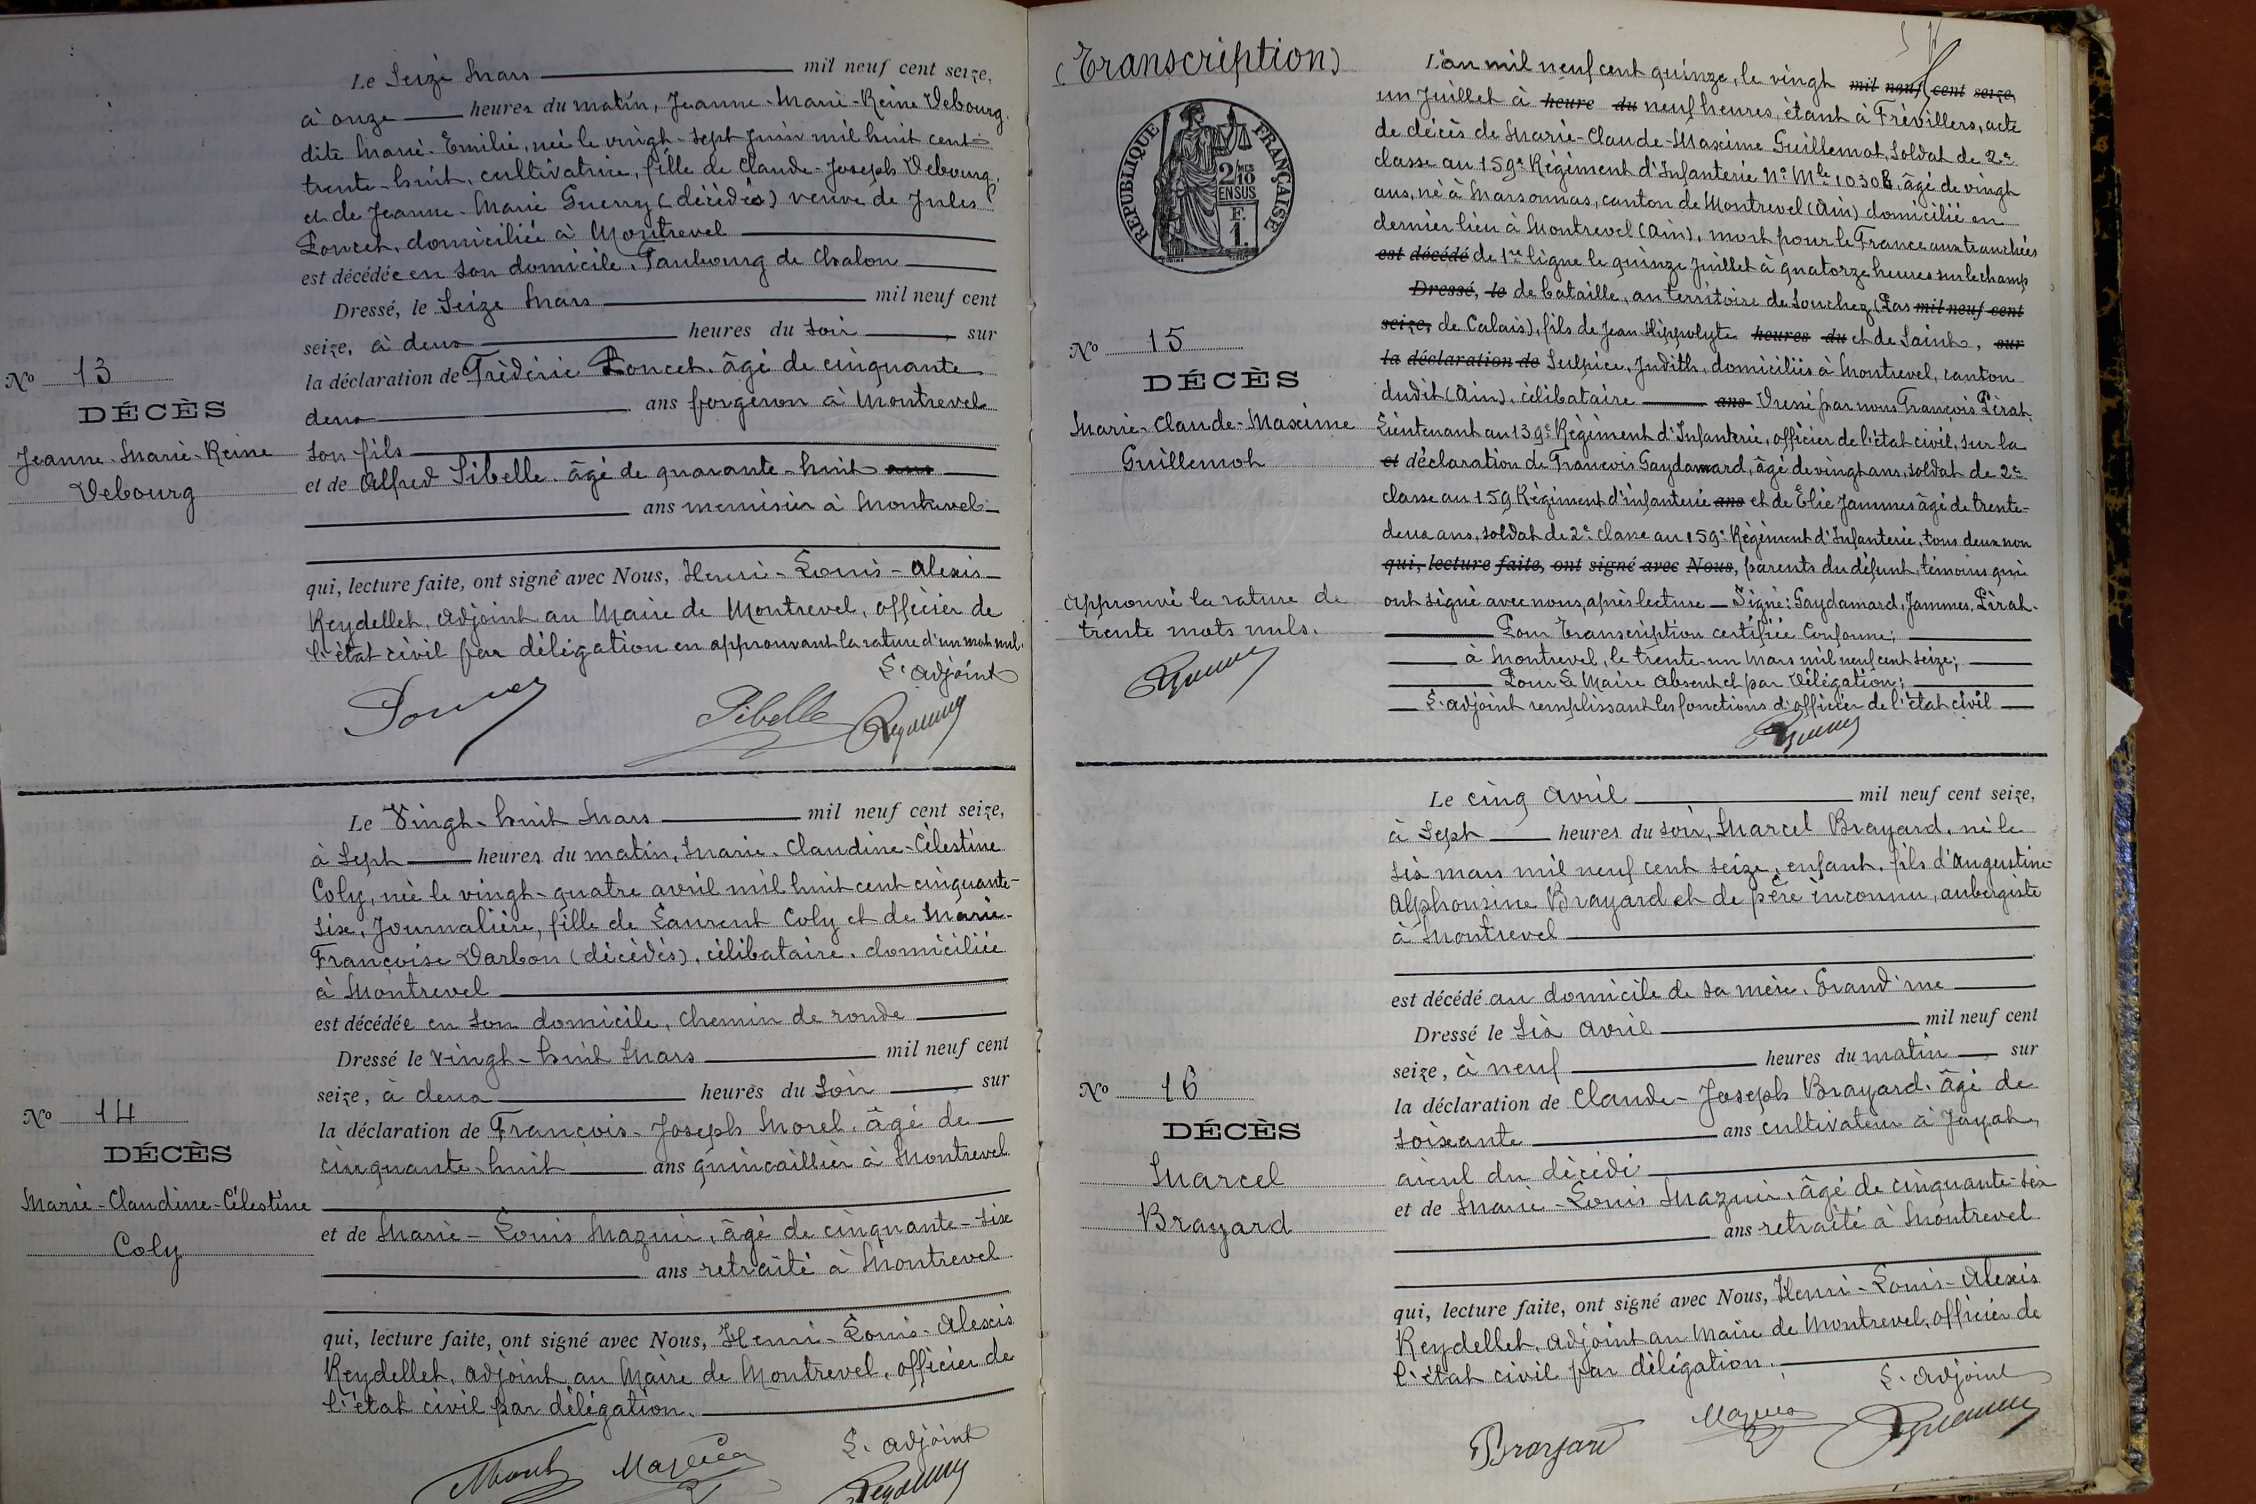 Le Seize Mars mil neuf cent seize,
à onze heures du matin, Jeanne-Marie-Reine Vebourg.
dite Marie-Emilie, née le vingt-sept Juin mil huit cent
trente-huit, cultivatrice, fille de Claude-Joseph Vebourg,
et de Jeanne-Marie Guerry (décédés) veuve de Jules
Poncet, domiciliée à Montrevel
est décédée en son domicile, Faubourg de Chalon
Dressé, le Seize Mars mil neuf cent
seize, à deux heures du soir sur
la déclaration de Frédéric Poncet, âgé de cinquante
deux ans forgeron à Montrevel
son fils
et de Alfred Sibelle, âgé de quarante-huit ans
ans menuisier à Montrevel
qui, lecture faite, ont signé avec Nous, Henri-Louis-Alexis
Reydellet, adjoint au Maire de Montrevel, officier de
l'état civil par délégation en approuvant la rature d'un mot nul.
L'adjoint
Poncet Sibelle
No 13
DÉCÈS
Jeanne-Marie-Reine
Vebourg
Le Vingt-huit Mars mil neuf cent seize,
à Sept heures du matin, Marie-Claudine-Célestine
Coly, née le vingt-quatre avril mil huit cent cinquante-
six, Journalière, fille de Laurent Coly et de Marie-
Françoise Darbon (décédés), célibataire, domiciliée
à Montrevel
est décédée en son domicile, chemin de ronde
Dressé le vingt-huit Mars mil neuf cent
seize, à deux heures du soir sur
la déclaration de François-Joseph Morel, âgé de
cinquante-huit ans quincaillier à Montrevel
et de Marie-Louis Mazuir, âgé de cinquante-six
ans retraité à Montrevel
qui, lecture faite, ont signé avec Nous, Henri-Louis-Alexis
Reydellet, adjoint au Maire de Montrevel, officier de
l'état civil par délégation.
L'adjoint
No 14
DÉCÈS
Marie-Claudine-Célestine
Coly
(Transcription)
RÉPUBLIQUE FRANÇAISE
2/10 EN SUS
F. 1.
L'an mil neuf cent quinze, le vingt mil neuf cent seize,
un Juillet à heure du neuf heures, étant à Frévillers, acte
de décès de Marie-Claude-Maxime Guillemot, soldat de 2e
classe au 159e Régiment d'Infanterie No Mle 10306, âgé de vingt
ans, né à Marsonnas, canton de Montrevel (Ain) domicilié en
dernier lieu à Montrevel (Ain), mort pour la France aux tranchées
est décédé de 1re ligne le quinze Juillet à quatorze heures sur le champ
Dressé, le de bataille, au territoire de Souchez (Pas mil neuf cent
seize, de Calais), fils de Jean Hippolyte heures du et de Saint, sur
la déclaration de Sulpice, Judith, domiciliés à Montrevel, canton
dudit (Ain), célibataire ans Dressé par nous François Pirat
Lieutenant au 139e Régiment d'Infanterie, officier de l'état civil, sur la
et déclaration de François Gaydamard, âgé de vingt ans, soldat de 2e
classe au 159 Régiment d'infanterie ans et de Elie Jammes âgé de trente-
deux ans, soldat de 2e classe au 159e Régiment d'Infanterie, tous deux non
qui, lecture faite, ont signé avec Nous, parents du défunt, témoins qui
ont signé avec nous, après lecture — Signé: Gaydamard, Jammes, Pirat.
Pour Transcription certifiée Conforme;
à Montrevel, le trente-un Mars mil neuf cent seize;
Pour le Maire absent et par Délégation;
L'adjoint remplissant les fonctions d'officier de l'état civil
No 15
DÉCÈS
Marie-Claude-Maxime
Guillemot
Approuvé la rature de
trente mots nuls.
Le cinq Avril mil neuf cent seize,
à Sept heures du soir, Marcel Brayard, né le
six mars mil neuf cent seize, enfant, fils d'Augustine
Alphonsine Brayard et de père inconnu, aubergiste
à Montrevel
est décédé au domicile de sa mère, Grand'rue
Dressé le Six Avril mil neuf cent
seize, à neuf heures du matin sur
la déclaration de Claude-Joseph Brayard, âgé de
soixante ans cultivateur à Jayat,
aïeul du décédé
et de Marie-Louis Mazuir, âgé de cinquante-six
ans retraité à Montrevel
qui, lecture faite, ont signé avec Nous, Henri-Louis-Alexis
Reydellet, adjoint au Maire de Montrevel, officier de
l'état civil par délégation.
L'adjoint
Brayard
No 16
DÉCÈS
Marcel
Brayard